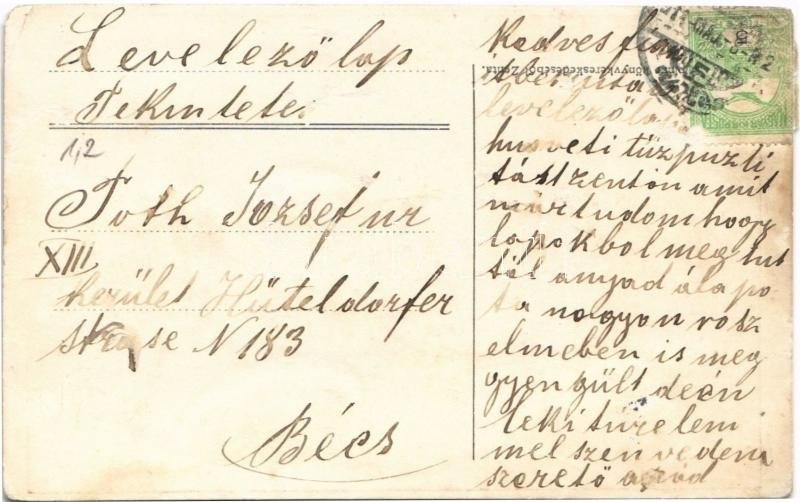 Levelező lap
Tekintetes
1,2
Toth Jozsef ur
XIII
kerület Hüteldorfer
strase N 183
Bécs
Kedves fiu
levelező la
husveti tüzpuzli
tást zenton amit
mär tudom hogy
lapokbol meg tut
tál anyad álapo
ta nagyon rosz
elmeben is meg
gyen gült de én
neki türelem
mel szen vedem
szerető apád